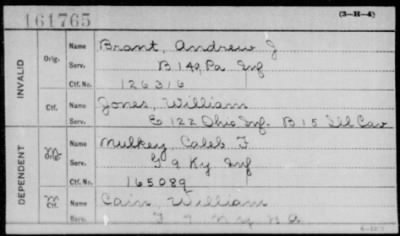 161765
(3-H-4)
INVALID
Orig. Name Brant, Andrew J
Serv. B 149, Pa Inf
Ctf. No. 126316
Ctf. Name Jones, William
Serv. E 122 Ohio Inf. B 15 Ill Cav
DEPENDENT
m Orig. Name Mulkey, Caleb F
Serv. G 9 Ky Inf
Ctf. No. 165089
m Ctf. Name Cain, William
Serv. F 7